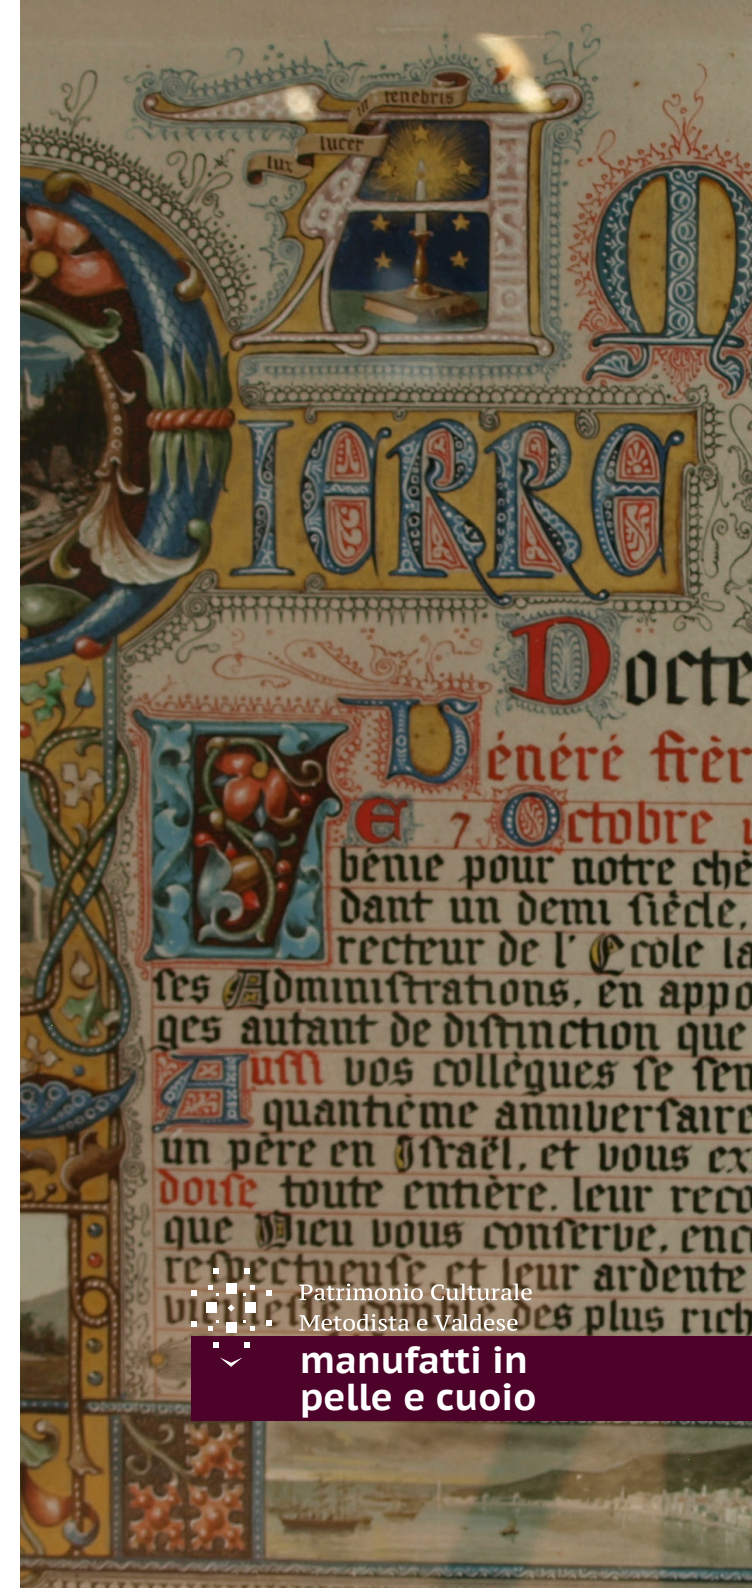 lux lucet in tenebris
A M
IERRE
Docte
Vénéré frèr
E 7 Octobre
bénie pour notre chè
dant un demi ſiècle,
recteur de l' Ecole la
ſes Adminiſtrations, en appo
ges autant de diſtinction que
Auſſi vos collègues ſe ſen
quantième anniverſaire
un père en Iſraël, et vous ex
doiſe toute entière, leur reco
que Dieu vous conſerve, enc
reſpectueuſe et leur ardente
des plus rich
Patrimonio Culturale
Metodista e Valdese
manufatti in
pelle e cuoio